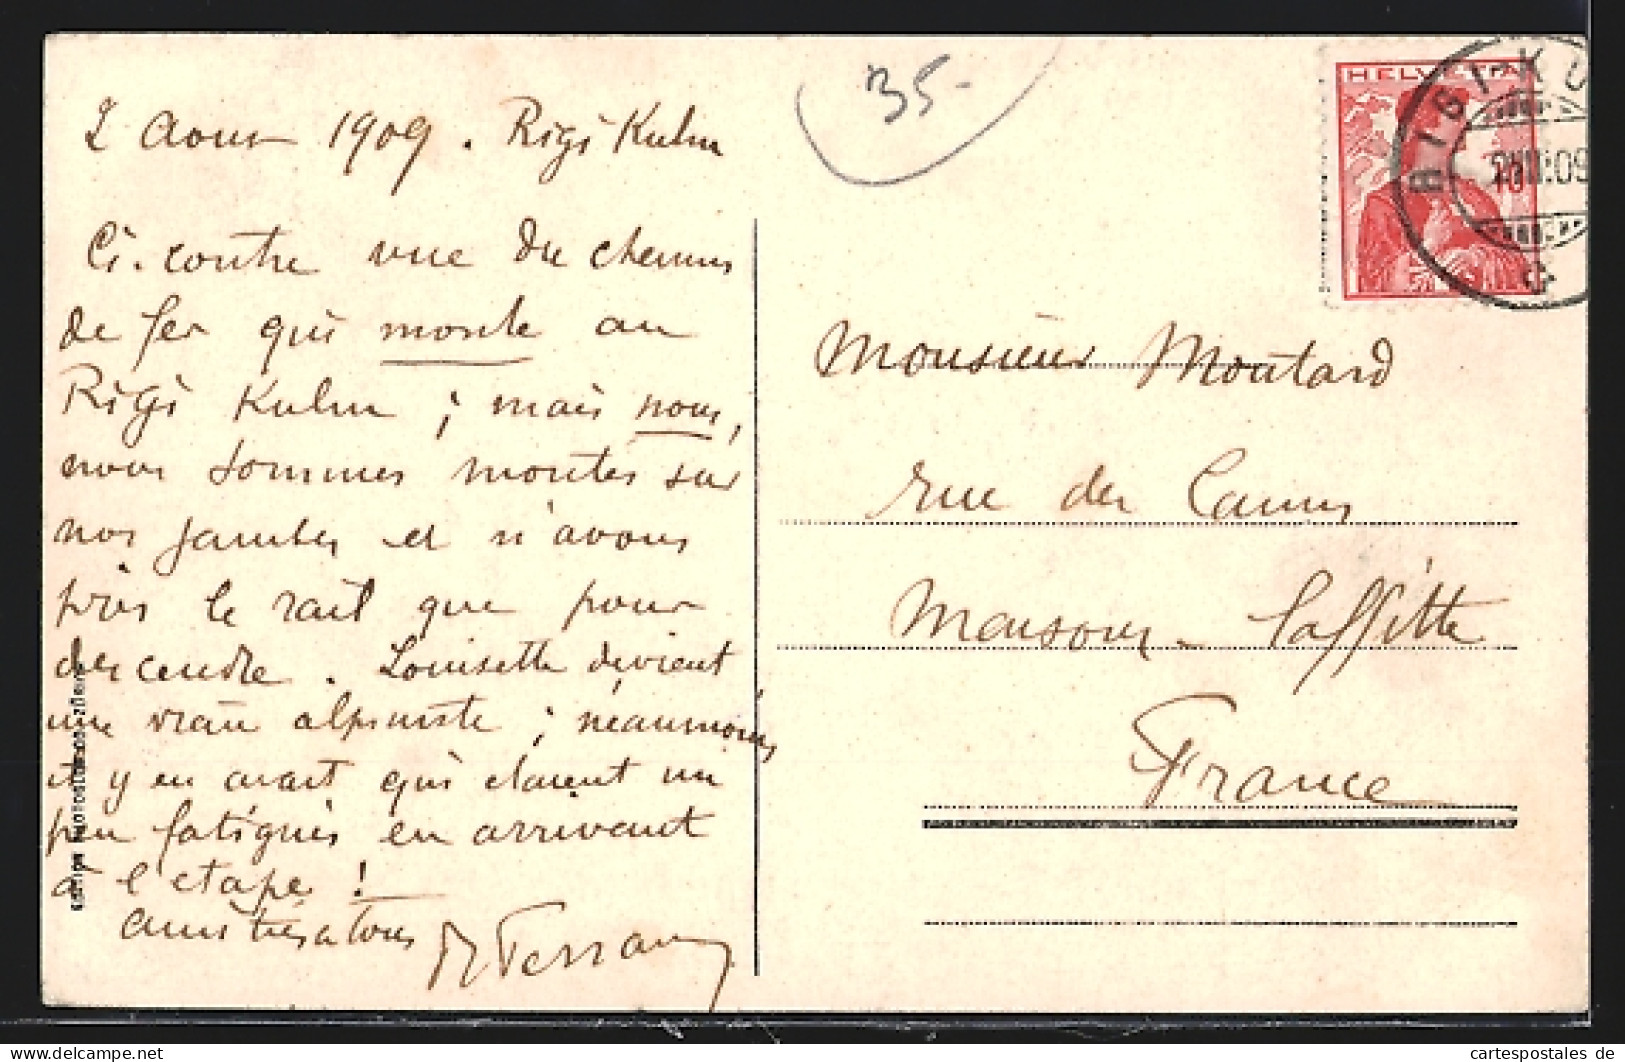 2 Aout 1909. Rigi Kulm
Ci-contre vue du chemin
de fer qui monte au
Rigi Kulm ; mais nous,
nous sommes montés sur
nos jambes et n'avons
pris le rail que pour
descendre. Louisette devient
une vraie alpiniste ; néanmoins
il y en avait qui étaient un
peu fatigués en arrivant
à l'étape !
Amitiés à tous
35-
HELVETIA
RIGI-KU
Monsieur Moutard
rue des Canus
Maisons-Laffitte
France
delcampe.net
cartespostales de